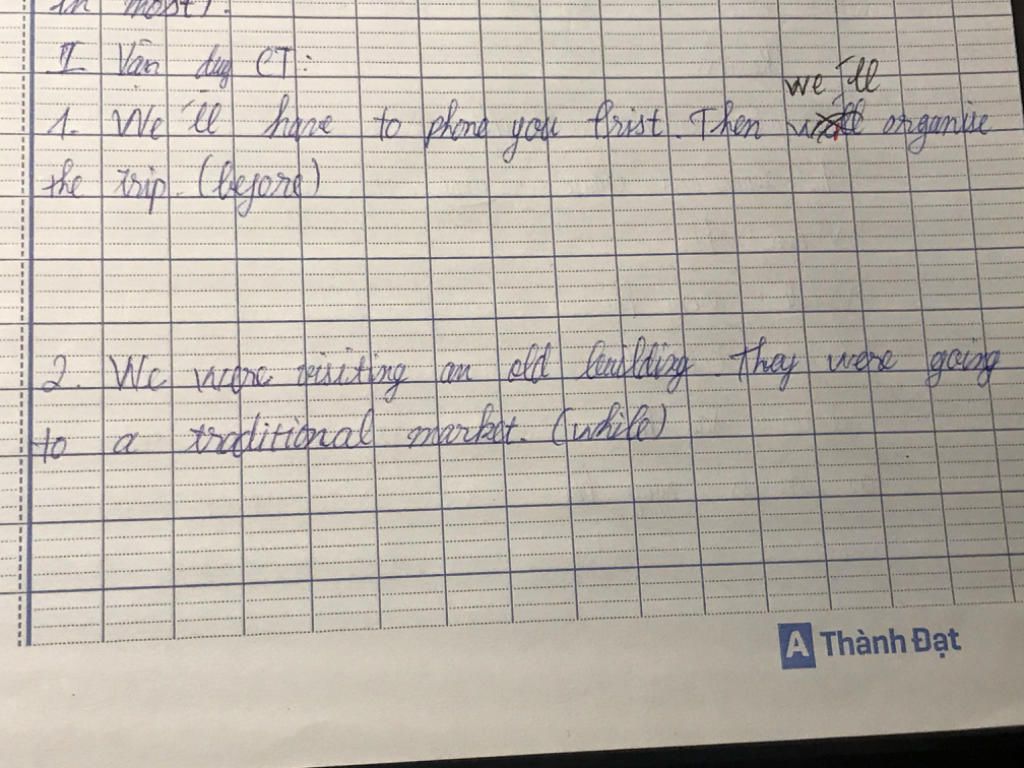 in most).
I Vân dụg CT:
we'll
1. We'll have to phone you frist. Then will organize
the trip. (before)
2. We were visiting an old building. They were going
to a traditional market. (while)
A Thành Đạt